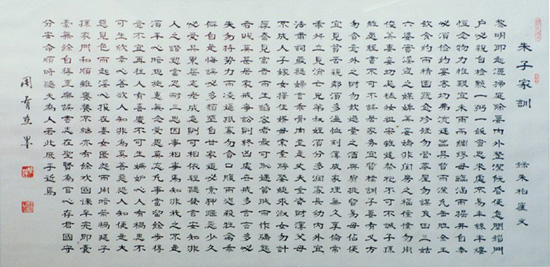 朱子家訓
錄朱柏廬文
黎明即起灑掃庭除要內外整潔既昏便息關鎖門
户必親自檢點一粥一飯當思來處不易半絲半縷
恆念物力維艱宜未雨而綢繆毋臨渴而掘井自奉
必須儉約宴客切勿流連器具質而潔瓦缶勝金玉
飲食約而精園蔬愈珍饈勿營華屋勿謀良田三姑
六婆實淫盜之媒婢美妾嬌非閨房之福童僕勿用
俊美妻妾切忌艷妝祖宗雖遠祭祀不可不誠子孫雖
愚經書不可不讀居家務宜質樸訓子要有義方
勿貪意外之財勿飲過量之酒與肩挑貿易毋佔便
宜見貧苦親鄰須多溫恤刻薄成家理無久享倫常
乖舛立見消亡兄弟叔姪須分多潤寡長幼內外宜
法肅辭嚴聽婦言乖骨肉豈是丈夫重資財薄父母
不成人子嫁女擇佳婿毋索重聘娶媳求淑女勿計
厚奩見富貴而生諂容者最可恥遇貧窮而作驕態
者賤莫甚居家戒爭訟訟則終凶處世戒多言言多
必失勿恃勢力而凌逼孤寡勿貪口腹而恣殺牲禽乖僻
自是悔誤必多頹惰自甘家道難成狎暱惡少久
必受其累屈志老成急則可相依輕聽發言安知非
人之譖愬當忍耐三思因事相爭焉知非我之不是
須平心暗想施惠無念受恩莫忘凡事當留餘地得
意不宜再往人有喜慶不可生妒忌心人有禍患不
可生欣幸心善欲人見不是真善惡恐人知便是大
惡見色而起淫心報在妻女匿怨而用暗箭禍延子
孫家門和順雖饔飧不繼亦有餘歡國課早完即囊
橐無餘自得至樂讀書志在聖賢為官心存君國守
分安命順時聽天為人若此庶乎近焉